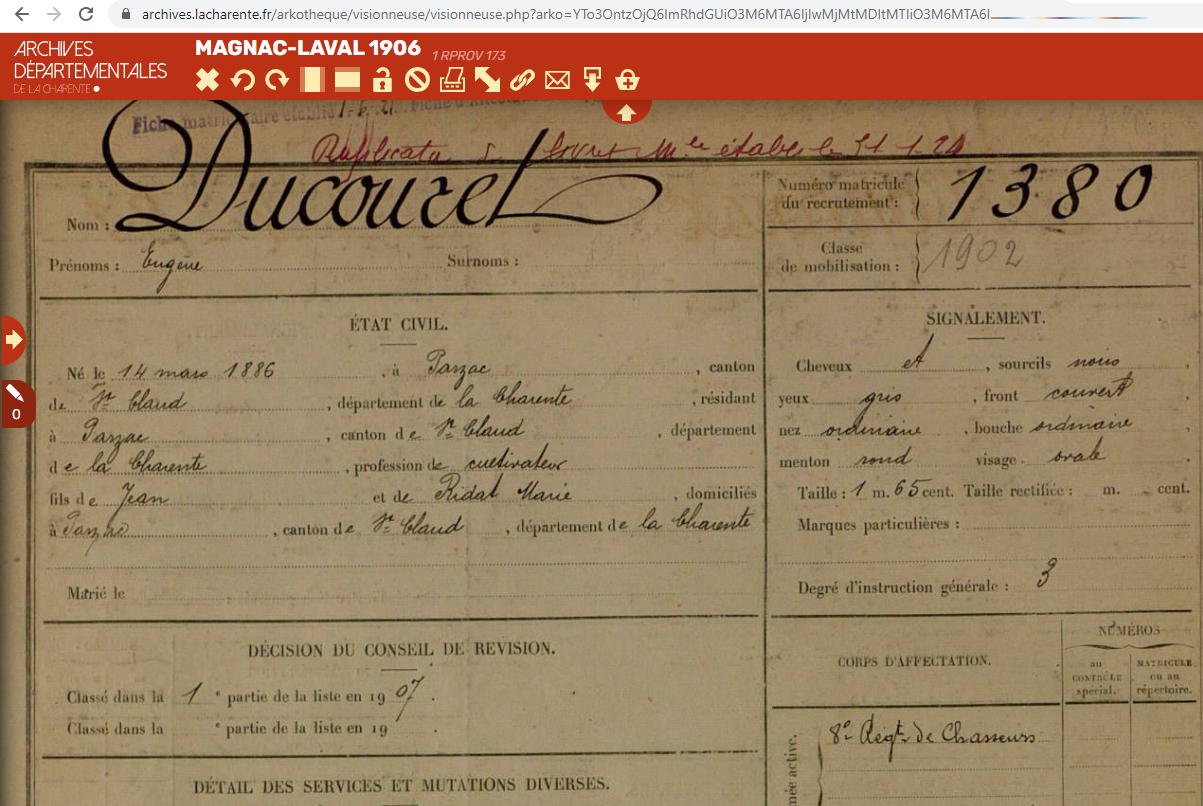 archives.lacharente.fr/arkotheque/visionneuse/visionneuse.php?arko=YTo3OntzOjQ6ImRhdGUiO3M6MTA6IjIwMjMtMDItMTIiO3M6MTA6I
ARCHIVES
DÉPARTEMENTALES
DE LA CHARENTE
MAGNAC-LAVAL 1906 1 RPROV 173
Fiche matriculaire établie 1.6.21.
Duplicata livret Mle établi le 31.1.21
Nom : Ducouret
Numéro matricule
du recrutement : 1380
Prénoms : Eugène Surnoms :
Classe
de mobilisation : 1902
ÉTAT CIVIL.
SIGNALEMENT.
Né le 14 mars 1886, à Parzac, canton
de St Claud, département de la Charente, résidant
à Parzac, canton de St Claud, département
de la Charente, profession de cultivateur
fils de Jean et de Ridat Marie, domiciliés
à Parzac, canton de St Claud, département de la Charente
Marié le
Cheveux et, sourcils noirs,
yeux gris, front couvert,
nez ordinaire, bouche ordinaire,
menton rond visage ovale
Taille : 1 m. 65 cent. Taille rectifiée : m. cent.
Marques particulières :
Degré d'instruction générale : 3
0
DÉCISION DU CONSEIL DE REVISION.
Classé dans la 1e partie de la liste en 1907.
Classé dans la e partie de la liste en 19 .
DÉTAIL DES SERVICES ET MUTATIONS DIVERSES.
CORPS D'AFFECTATION.
NUMÉROS
au
CONTRÔLE
spécial.
MATRICULE
ou au
répertoire.
8e Régt de Chasseurs